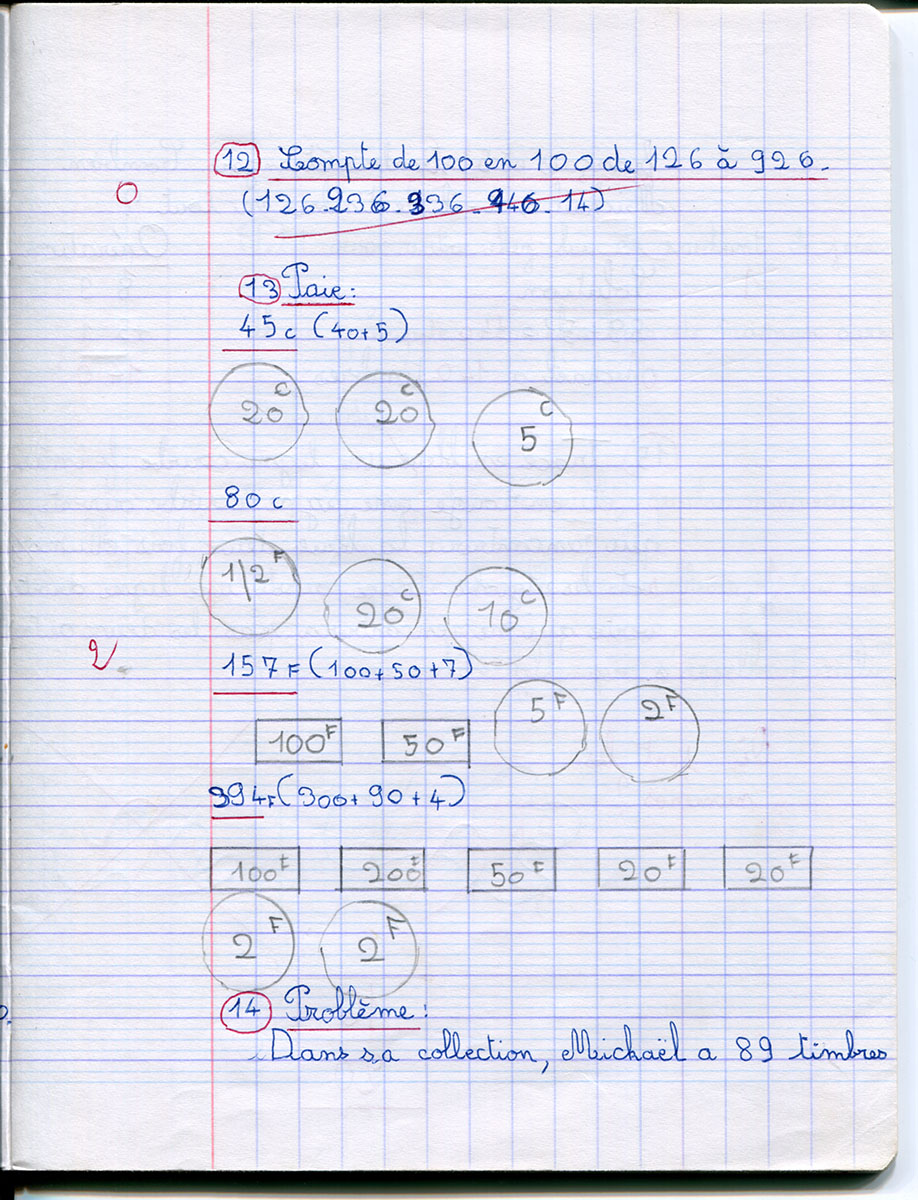 12 Compte de 100 en 100 de 126 à 926.
0
(126.236.336.946.14)
13 Paie:
45c (40+5)
20c 20c 5c
80c
1/2F 20c 10c
2
157F (100+50+7)
100F 50F 5F 2F
394F (300+90+4)
100F 200F 50F 20F 20F
2F 2F
14 Problème:
Dans sa collection, Mickaël a 89 timbres